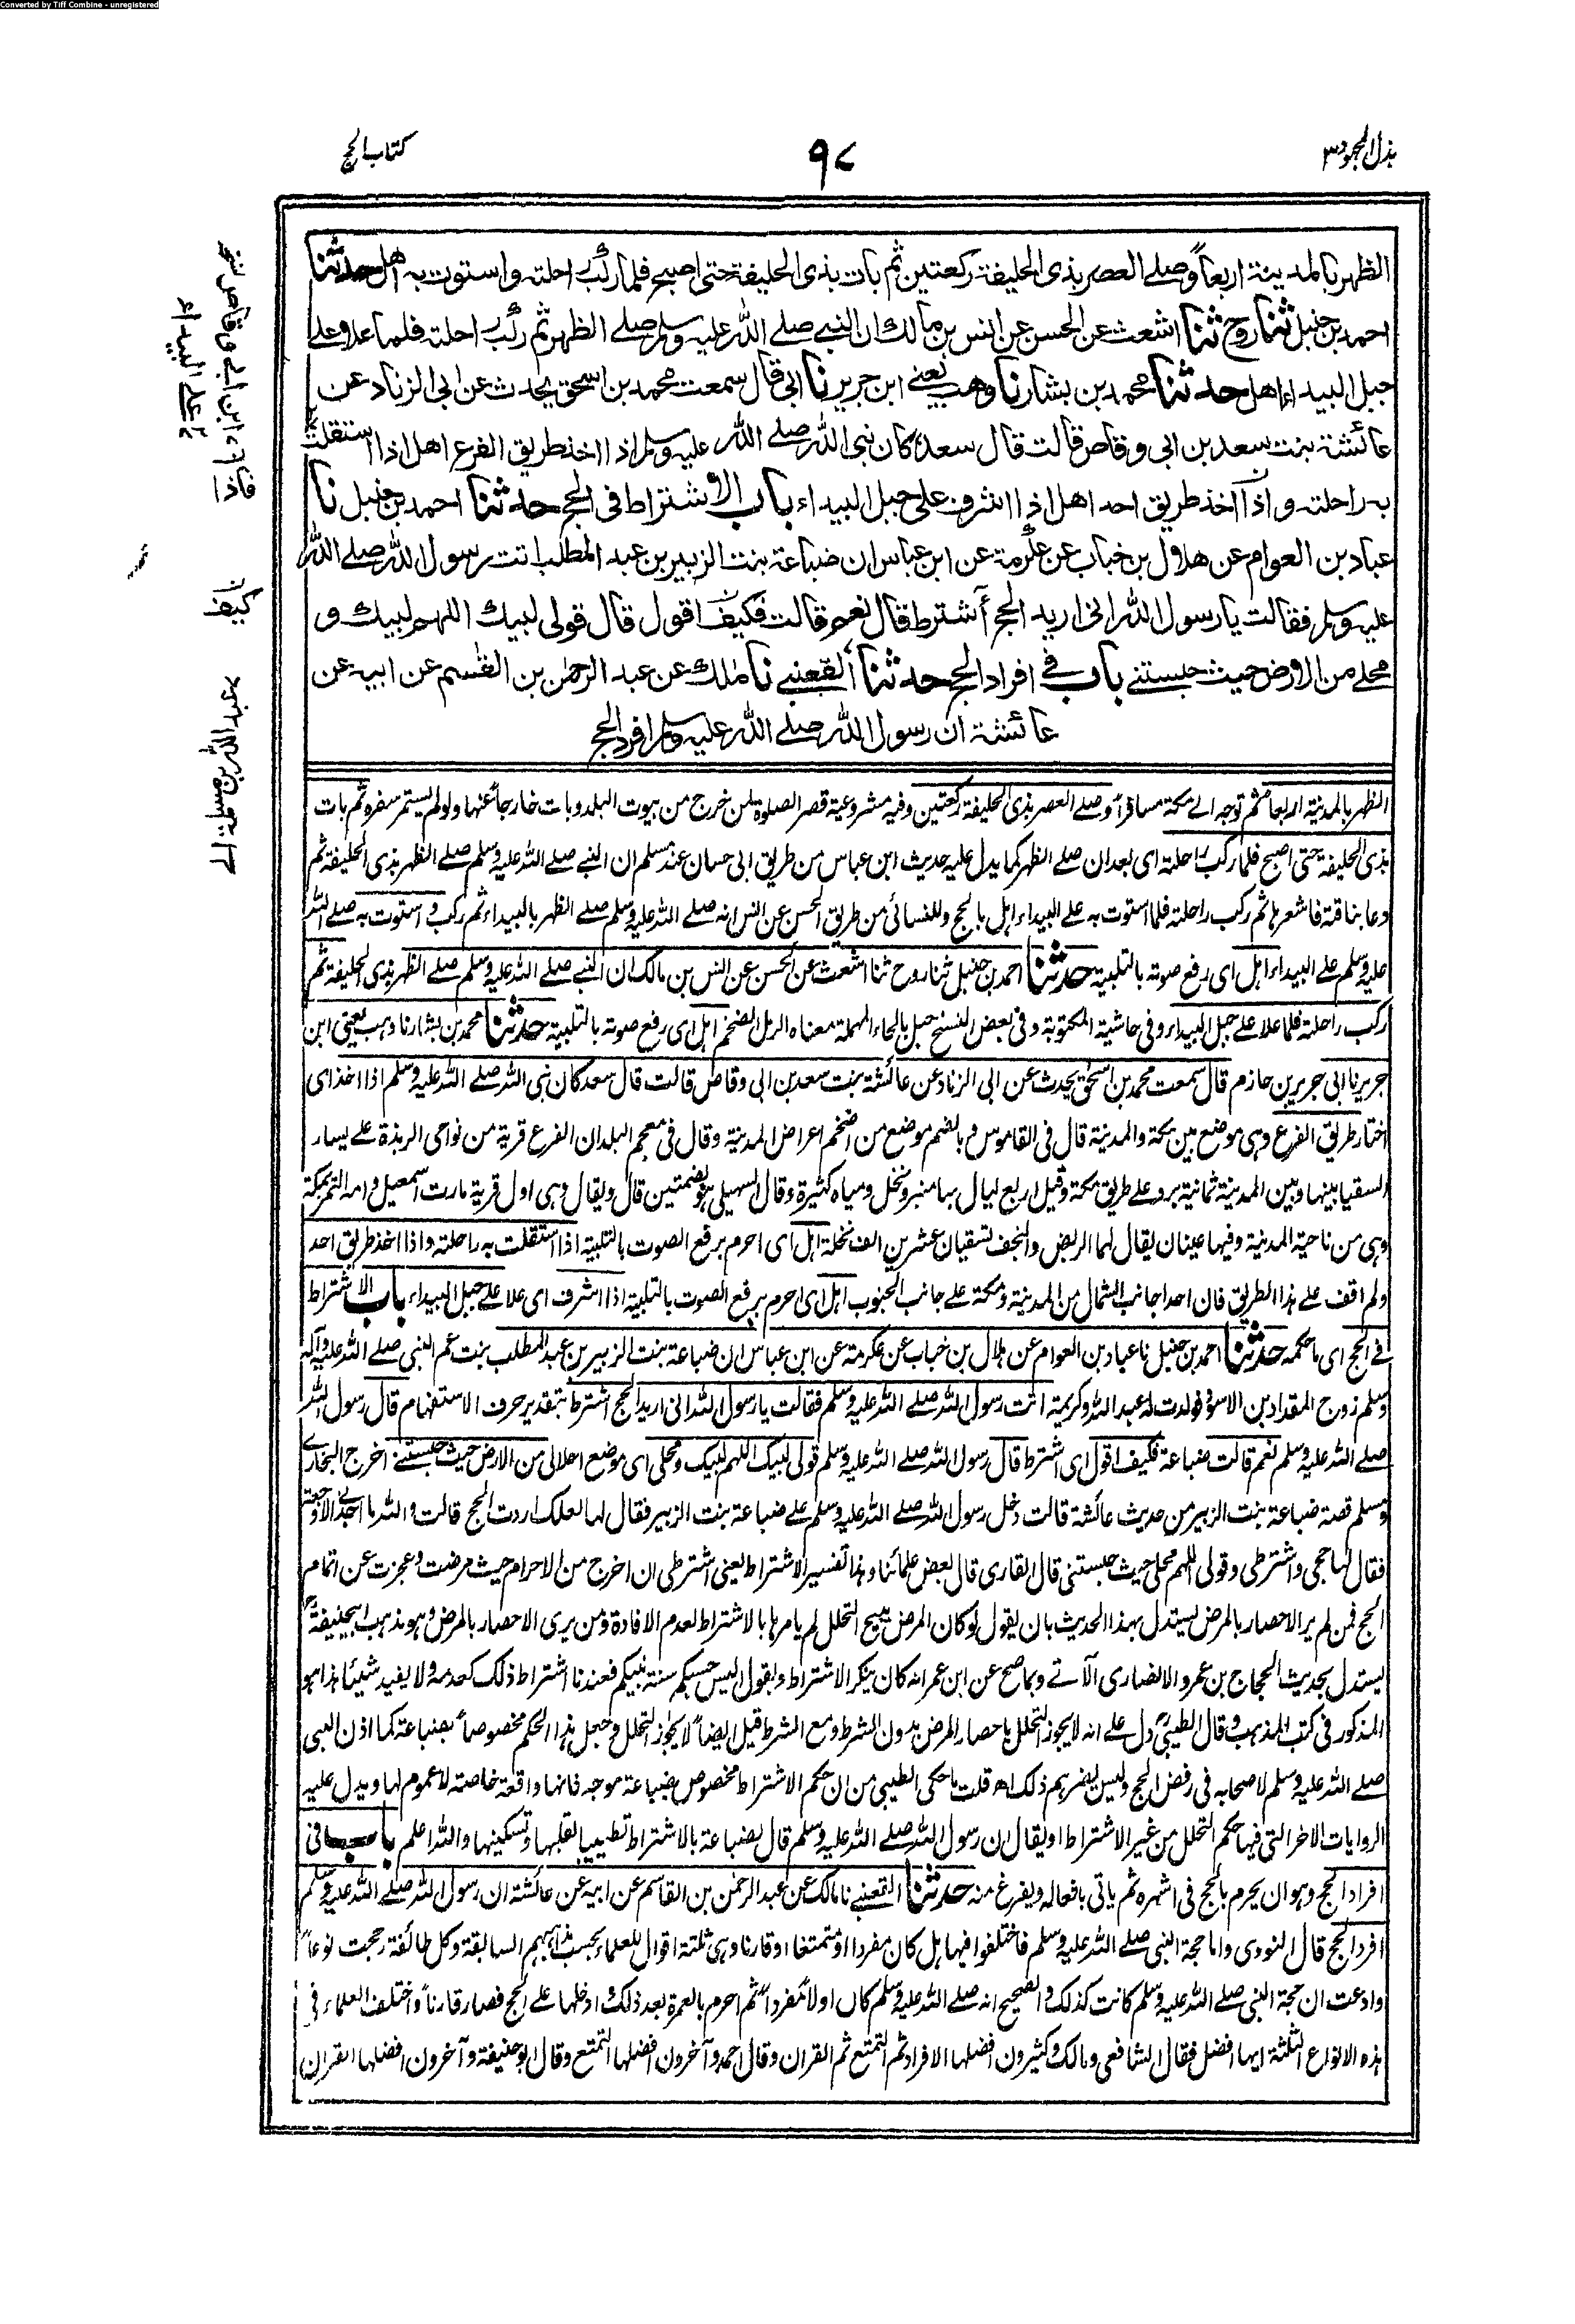 Converted by Tiff Combine - unregistered
بذل المجهود ٣
٩٧
كتاب الحج
الظهر بالمدينة اربعا وصلى العصر بذى الحليفة ركعتين ثم بات بذى الحليفة حتى اصبح فلما ركب راحلته واستوت به اهل حدثنا
احمد بن حنبل ثنا روح ثنا اشعث عن الحسن عن انس بن مالك ان النبى صلى الله عليه وسلم صلى الظهر ثم ركب راحلته فلما علا على
جبل البيداء اهل حدثنا محمد بن بشار نا وهب يعنى ابن جرير نا ابى قال سمعت محمد بن اسحق يحدث عن ابى الزناد عن
عائشة بنت سعد بن ابى وقاص قالت قال سعد كان نبى الله صلى الله عليه وسلم اذا اخذ طريق الفرع اهل اذا استقلت
به راحلته واذا اخذ طريق احد اهل اذا اشرف على جبل البيداء باب الاشتراط فى الحج حدثنا احمد بن حنبل نا
عباد بن العوام عن هلال بن خباب عن عكرمة عن ابن عباس ان ضباعة بنت الزبير بن عبد المطلب اتت رسول الله صلى الله
عليه وسلم فقالت يا رسول الله انى اريد الحج أشترط قال نعم قالت فكيف اقول قال قولى لبيك اللهم لبيك و
محلى من الارض حيث حبستنى باب فى افراد الحج حدثنا القعنبى نا مالك عن عبد الرحمن بن القاسم عن ابيه عن
عائشة ان رسول الله صلى الله عليه وسلم افرد الحج
الظهر بالمدينة اربعا ثم توجه الى مكة مسافرا وصلى العصر بذى الحليفة ركعتين وفيه مشروعية قصر الصلوة لمن خرج من بيوت البلد وبات خارجا عنها ولو لم يستمر سفره ثم بات
بذى الحليفة حتى اصبح فلما ركب راحلته اى بعد ان صلى الظهر كما يدل عليه حديث ابن عباس من طريق ابى حسان عند مسلم ان النبى صلى الله عليه وسلم صلى الظهر بذى الحليفة ثم
دعا بناقته فاشعرها ثم ركب راحلته فلما استوت به على البيداء اهل بالحج وللنسائى من طريق الحسن عن انس انه صلى الله عليه وسلم صلى الظهر بالبيداء ثم ركب واستوت به صلى الله
عليه وسلم على البيداء اهل اى رفع صوته بالتلبية حدثنا احمد بن حنبل ثنا روح ثنا اشعث عن الحسن عن انس بن مالك ان النبى صلى الله عليه وسلم صلى الظهر بذى الحليفة ثم
ركب راحلته فلما علا على جبل البيداء وفى حاشية المكتوبة وفى بعض النسخ حبل بالحاء المهملة معناه الرمل الضخم اهل اى رفع صوته بالتلبية حدثنا محمد بن بشار نا وهب يعنى ابن
جرير نا ابى جرير بن حازم قال سمعت محمد بن اسحق يحدث عن ابى الزناد عن عائشة بنت سعد بن ابى وقاص قالت قال سعد كان نبى الله صلى الله عليه وسلم اذا اخذ اى
اختار طريق الفرع وهى موضع بين مكة والمدينة قال فى القاموس وبالضم موضع من اضخم اعراض المدينة وقال فى معجم البلدان الفرع قرية من نواحى الربذة على يسار
السقيا بينها وبين المدينة ثمانية برد على طريق مكة وقيل اربع ليال بها منبر ونخل ومياه كثيرة وقال السهيلى هو بضمتين قال ويقال وهى اول قرية مارت اسمعيل وامه التمر بمكة
وهى من ناحية المدينة وفيها عينان يقال لهما الربض والنجف تسقيان عشرين الف نخلة اهل اى احرم برفع الصوت بالتلبية اذا استقلت به راحلته واذا اخذ طريق احد
ولم اقف على هذا الطريق فان احدا جانب الشمال من المدينة ومكة على جانب الجنوب اهل اى احرم برفع الصوت بالتلبية اذا اشرف اى علا على جبل البيداء باب الاشتراط
فى الحج اى ما حكمه حدثنا احمد بن حنبل نا عباد بن العوام عن هلال بن خباب عن عكرمة عن ابن عباس ان ضباعة بنت الزبير بن عبد المطلب بنت عم النبى صلى الله عليه وآله
وسلم زوج المقداد بن الاسود فولدت له عبد الله وكريمة اتت رسول الله صلى الله عليه وسلم فقالت يا رسول الله انى اريد الحج اشترط بتقدير حرف الاستفهام قال رسول الله
صلى الله عليه وسلم نعم قالت ضباعة فكيف اقول اى اشترط قال رسول الله صلى الله عليه وسلم قولى لبيك اللهم لبيك ومحلى اى موضع احلالى من الارض حيث حبستنى اخرج البخارى
ومسلم قصة ضباعة بنت الزبير من حديث عائشة قالت دخل رسول الله صلى الله عليه وسلم على ضباعة بنت الزبير فقال لها لعلك اردت الحج قالت والله ما اجدنى الا وجعة
فقال لها حجى واشترطى وقولى اللهم محلى حيث حبستنى قال القارى قال بعض علمائنا وهذا تفسير الاشتراط يعنى اشترطى ان اخرج من الاحرام حيث مرضت وعجزت عن اتمام
الحج فمن لم ير الاحصار بالمرض يستدل بهذا الحديث بان يقول لو كان المرض يبيح التحلل لم يامرها بالاشتراط لعدم الافادة ومن يرى الاحصار بالمرض وهو مذهب ابيحنيفة
يستدل بحديث الحجاج بن عمرو الانصارى الآتى وبما صح عن ابن عمر انه كان ينكر الاشتراط ويقول اليس حسبكم سنة نبيكم فعندنا اشتراط ذلك كعدمه ولا يفيد شيئا هذا هو
المذكور فى كتب المذهب وقال الطيبى دل على انه لا يجوز التحلل باحصار المرض بدون الشرط ومع الشرط قيل ايضا لا يجوز التحلل وجعل هذا الحكم مخصوصا بضباعة كما اذن النبى
صلى الله عليه وسلم لاصحابه فى رفض الحج وليس يضرهم ذلك اه قلت ما حكى الطيبى من ان حكم الاشتراط مخصوص بضباعة موجه فانها واقعة خاصة لا عموم لها ويدل عليه
الروايات الاخر التى فيها حكم التحلل من غير الاشتراط او يقال ان رسول الله صلى الله عليه وسلم قال بضباعة بالاشتراط تطييبا لقلبها وتسكينها والله اعلم باب فى
افراد الحج وهو ان يحرم بالحج فى اشهره ثم ياتى بافعاله ويفرغ منه حدثنا القعنبى نا مالك عن عبد الرحمن بن القاسم عن ابيه عن عائشة ان رسول الله صلى الله عليه وسلم
افرد الحج قال النووى واما حجة النبى صلى الله عليه وسلم فاختلفوا فيها هل كان مفردا او متمتعا او قارنا وهى ثلثة اقوال للعلماء بحسب مذاهبهم السابقة وكل طائفة رجحت نوعا
وادعت ان حجة النبى صلى الله عليه وسلم كانت كذلك والصحيح انه صلى الله عليه وسلم كان اولا مفردا ثم احرم بالعمرة بعد ذلك وادخلها على الحج فصار قارنا واختلف العلماء فى
هذه الانواع الثلثة ايها افضل فقال الشافعى ومالك وكثيرون افضلها الافراد ثم التمتع ثم القران وقال احمد وآخرون افضلها التمتع وقال ابو حنيفة وآخرون افضلها القران
على البيداء